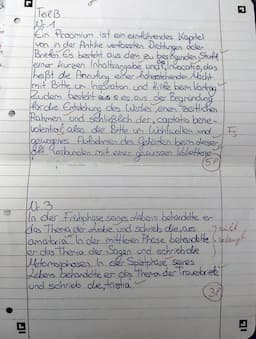 Teil B
Nr. 1
Ein Proömium ist ein einführendes Kapitel
von in der Antike verfassten Dichtungen oder
Briefen. Es besteht aus dem zu besingenden Stoff,
einer kurzen Inhaltsangabe und, Invocatio, das
heißt die Anrufung einer höherstehenden Macht
mit Bitte um Inspiration und Hilfe beim Vortrag
Zudem besteht es aus der Begründung
für die Entstehung des Werkes, einen zeitlichen
Rahmen und schließlich der, captatio bene-
volentiae, also die Bitte um Wohlwollen und
Aufnehmen des Gehörten
verbunden mit einer gewissen
5P
Nr. 3
In der Frühphase seines Lebens behandelte er
das Thema der Liebe und schrieb die, ars
amatoria. In der mittleren Phase behandelte
er das Thema der Sagen und schrieb die
Metamorphosen. In der Spätphase seines
Lebens behandelte er das Thema der Trauerbriefe
und schrieb die, tristia
3P